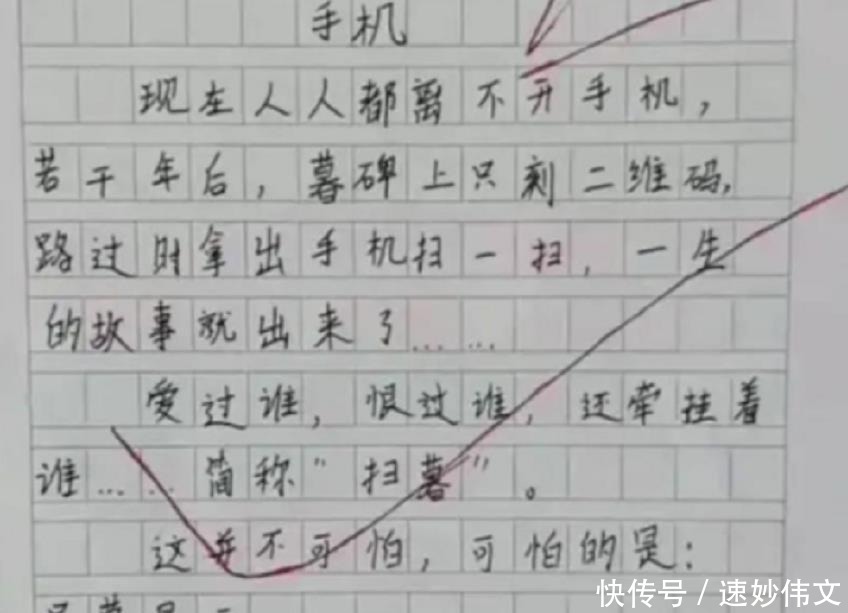 手机
现在人人都离不开手机，
若干年后，暮碑上只刻二维码，
路过时拿出手机扫一扫，一生
的故事就出来了……
爱过谁，恨过谁，还牵挂着
谁……简称“扫暮”。
这并不可怕，可怕的是：
快传号 / 速妙伟文